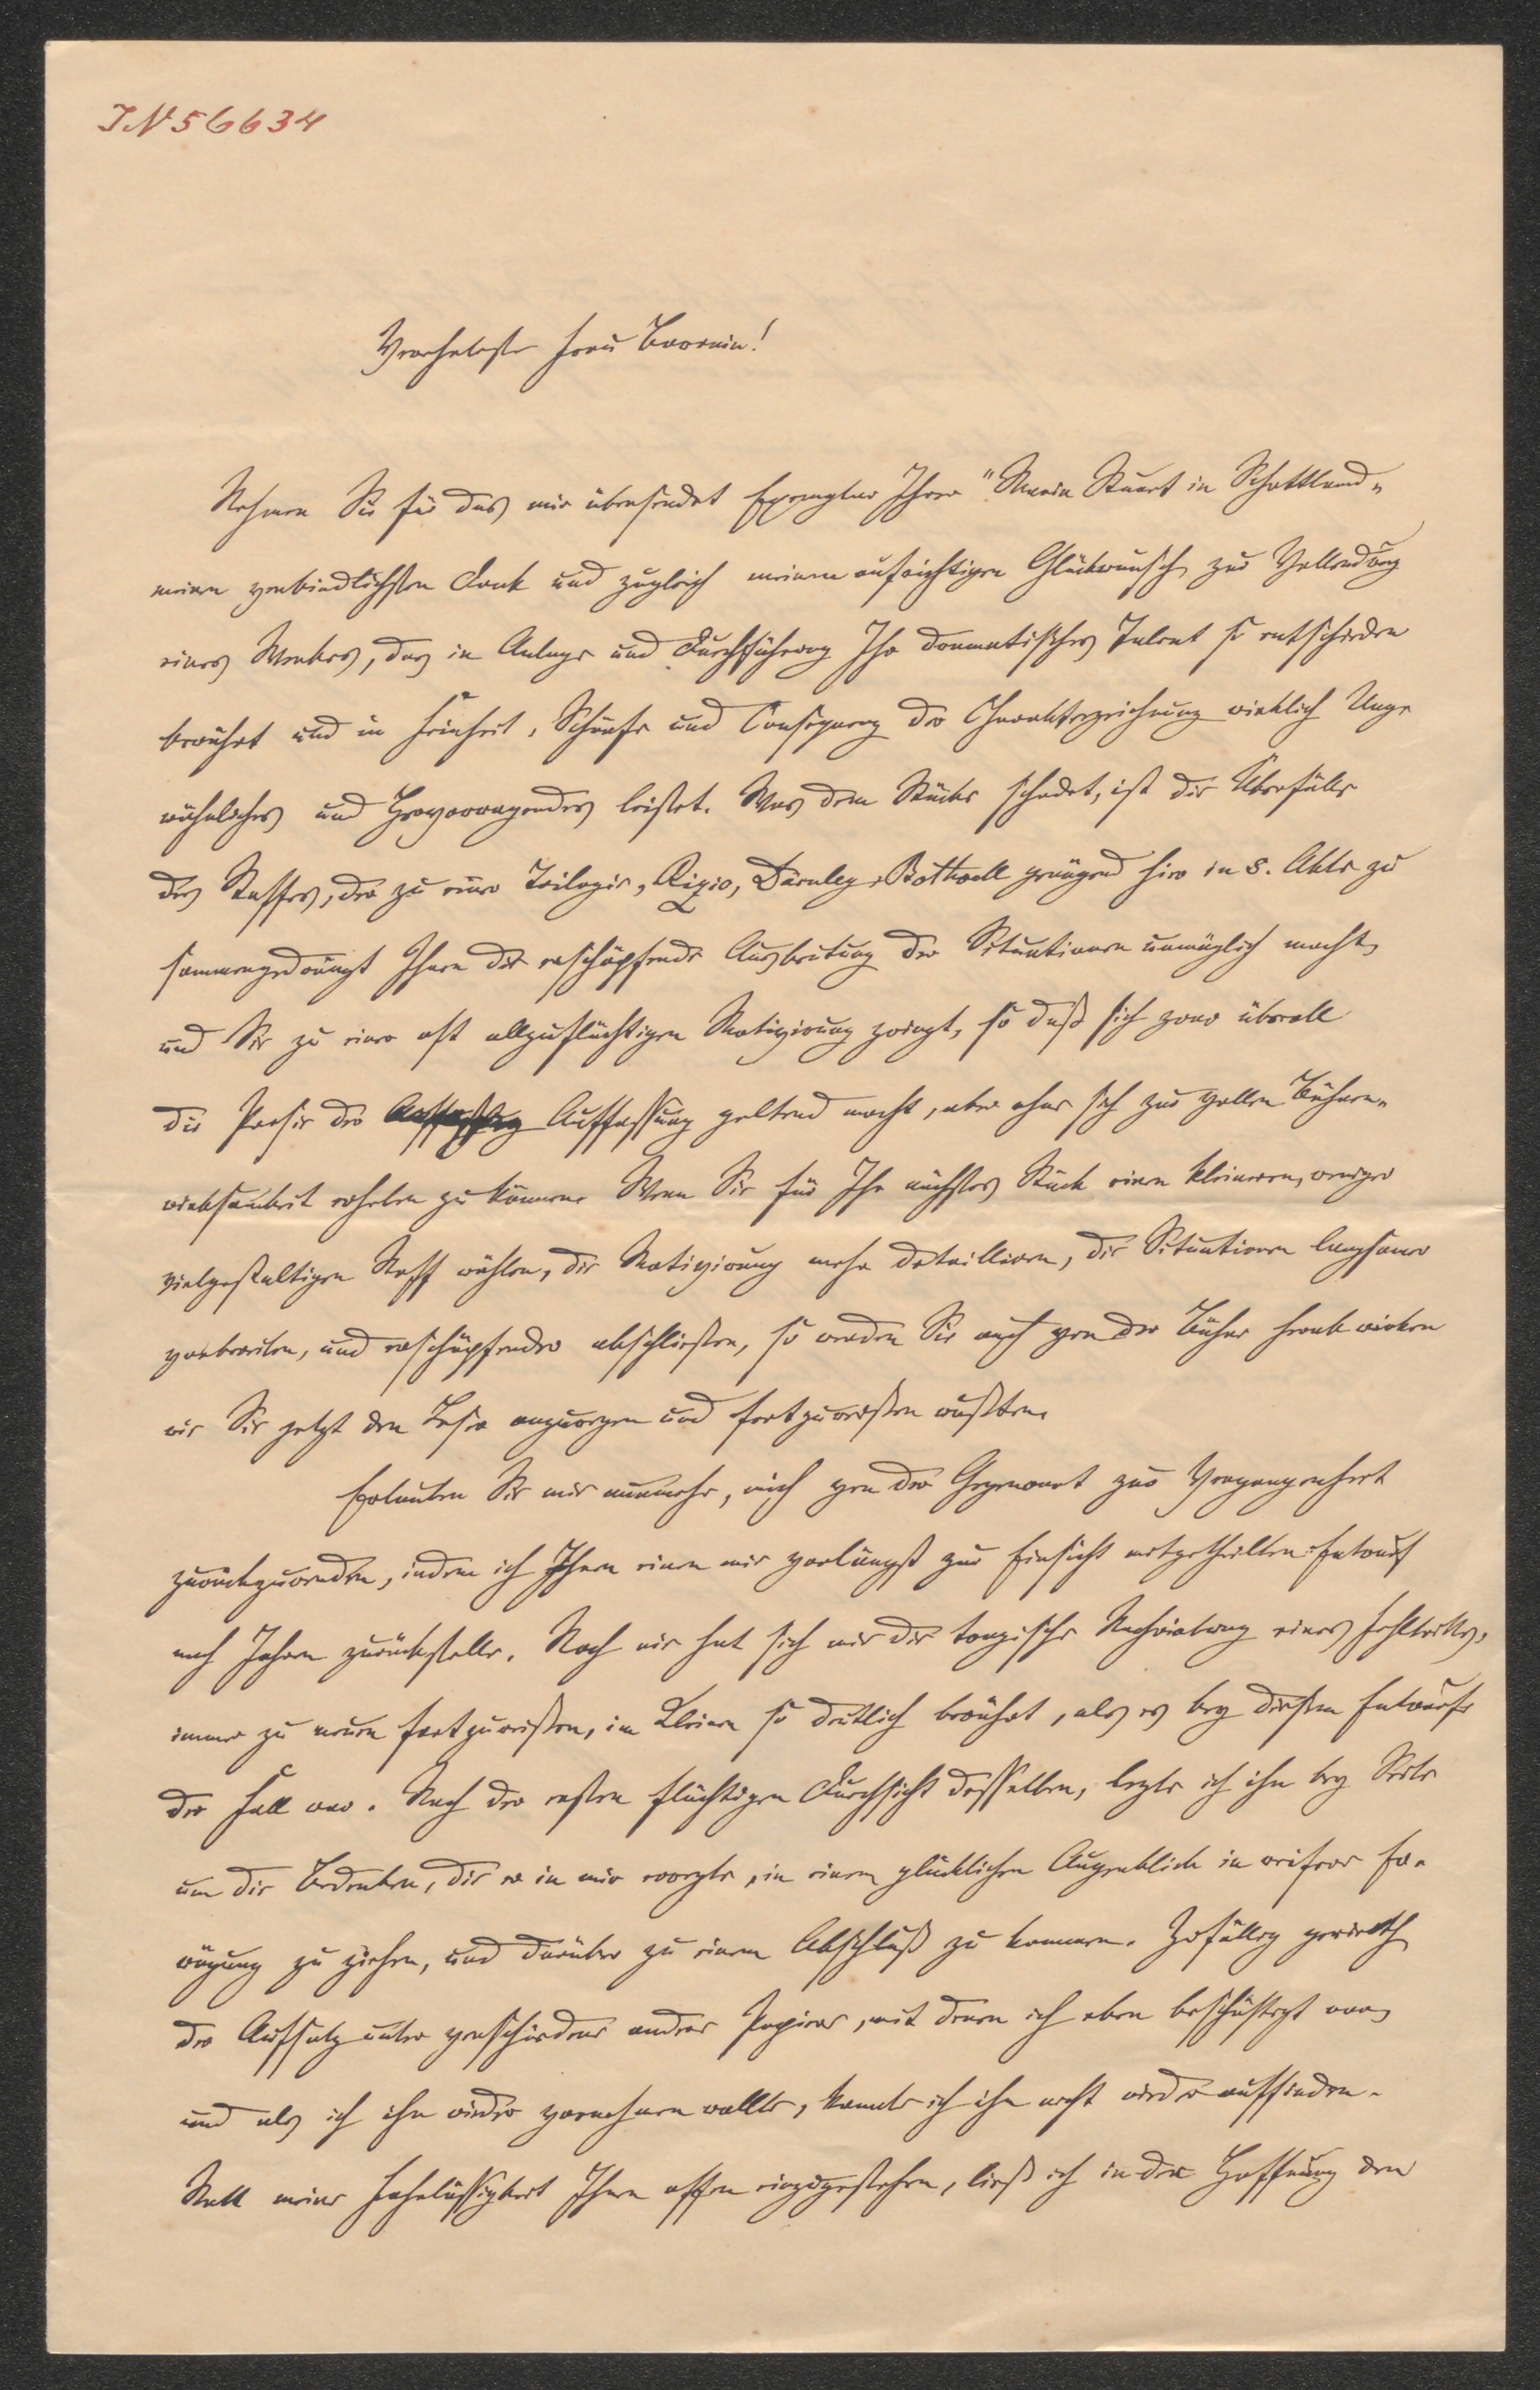 IN 56634
Verehrteste Frau Baronin!
Nehmen Sie für das mir übersendet Exemplar Ihrer "Maria Stuart in Schottland"
meinen verbindlichsten Dank und zugleich meinen aufrichtigen Glückwunsch zur Vollendung
eines Werkes, das in Anlage und Durchführung Ihr dramatisches Talent so entschieden
bewährt und in Feinheit, Schärfe und Consequenz der Charakterzeichnung wirklich Unge
wöhnliches und Hervorragendes leistet. Was dem Stücke schadet, ist die Überfülle
des Stoffes, der zu einer Trilogie, Rizio, Darnley, Bothwell genügend hier in 5. Akte zu
sammengedrängt Ihnen die erschöpfende Ausbeutung der Situationen unmöglich macht,
und Sie zu einer oft allzuflüchtigen Motivirung zwingt, so daß sich zwar überall
die Poesie der Auffassung geltend macht, aber ohne sich zur vollen Bühnen-
wirksamkeit erheben zu können. Wenn Sie für Ihr nächstes Stück einen kleineren, weniger
vielgestaltigen Stoff wählen, die Motivirung mehr detailliren, die Situationen langsamer
vorbereiten, und erschöpfender abschließen, so werden Sie auch von der Bühne herab wirken
wie Sie jetzt den Leser anzuregen und fortzureißen wußten.
Erlauben Sie mir nunmehr, mich von der Gegenwart zur Vergangenheit
zurückzuwenden, indem ich Ihnen einen mir vorlängst zur Einsicht mitgetheilten Entwurf
nach Jahren zurückstelle. Noch nie hat sich mir die tragische Nachwirkung eines Fehltritts,
immer zu neuen fortzureißen, im Kleinen so deutlich bewährt, als es bey diesem Entwurfe
der Fall war. Nach der ersten flüchtigen Durchsicht desselben, legte ich ihn bey Seite
um die Bedenken, die er in mir erregte, in einem glücklichen Augenblick in reifere Er-
wägung zu ziehen, und darüber zu einem Abschluß zu kommen. Zufällig gerieth
der Aufsatz unter verschiedene andere Papiere, mit denen ich eben beschäftigt war,
und als ich ihn wieder vornehmen wollte, konnte ich ihn nicht wieder auffinden.
Statt meine Fahrlässigkeit Ihnen offen einzugestehen, ließ ich in der Hoffnung den